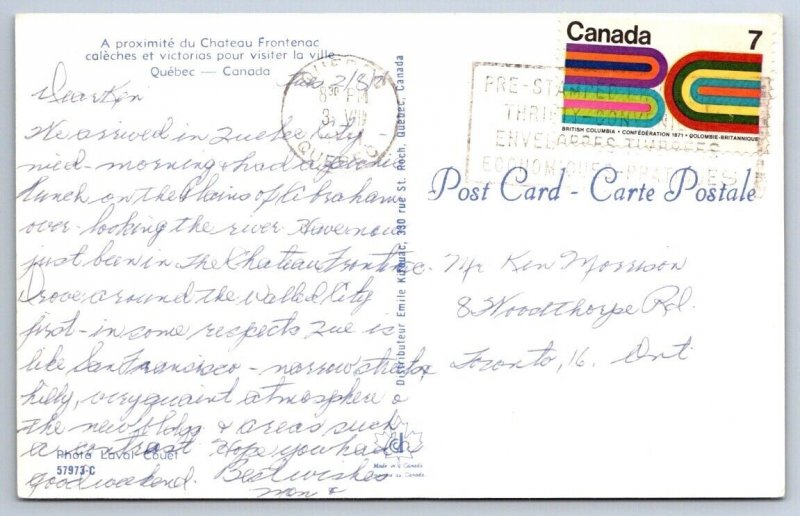 A proximité du Chateau Frontenac
calèches et victorias pour visiter la ville
Québec — Canada
Tues 2/8/71
Dear Ken
We arrived in Quebec City -
mid-morning & had a picnic
lunch on the Plains of Abraham
over-looking the river. Have now
just been in the Chateau Frontenac.
Drove around the Walled City
first - in some respects Que is
like San Francisco - narrow streets
hilly, very quaint atmosphere &
the new bldgs & areas such
a contrast. Hope you had a
good weekend. Best wishes
Photo Laval Couët
57973-C
Distributeur Emile Kirouac, 330 rue St. Roch, Québec, Canada
Made in Canada
QUEBEC
8 30 PM
QUEBEC
PRE-STAMPED
ENVELOPPES TIMBRÉES
ÉCONOMIQUES-PRATIQUES
Canada 7
BRITISH COLUMBIA • CONFÉDÉRATION 1871 • COLOMBIE-BRITANNIQUE
Post Card - Carte Postale
Mr Ken Morrison
8 Woodthorpe Rd.
Toronto, 16. Ont